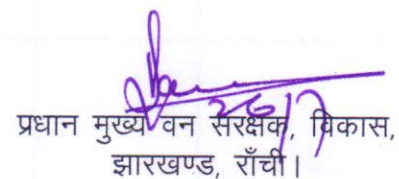 26/7
प्रधान मुख्य वन संरक्षक, विकास,
झारखण्ड, राँची।